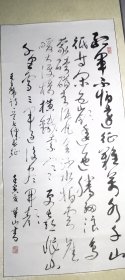 红军不怕远征难万水千山
只等闲五岭逶迤腾细浪乌
蒙磅礴走泥丸金沙水拍云崖
暖大渡桥横铁索寒更喜岷山
千里雪三军过后尽开颜